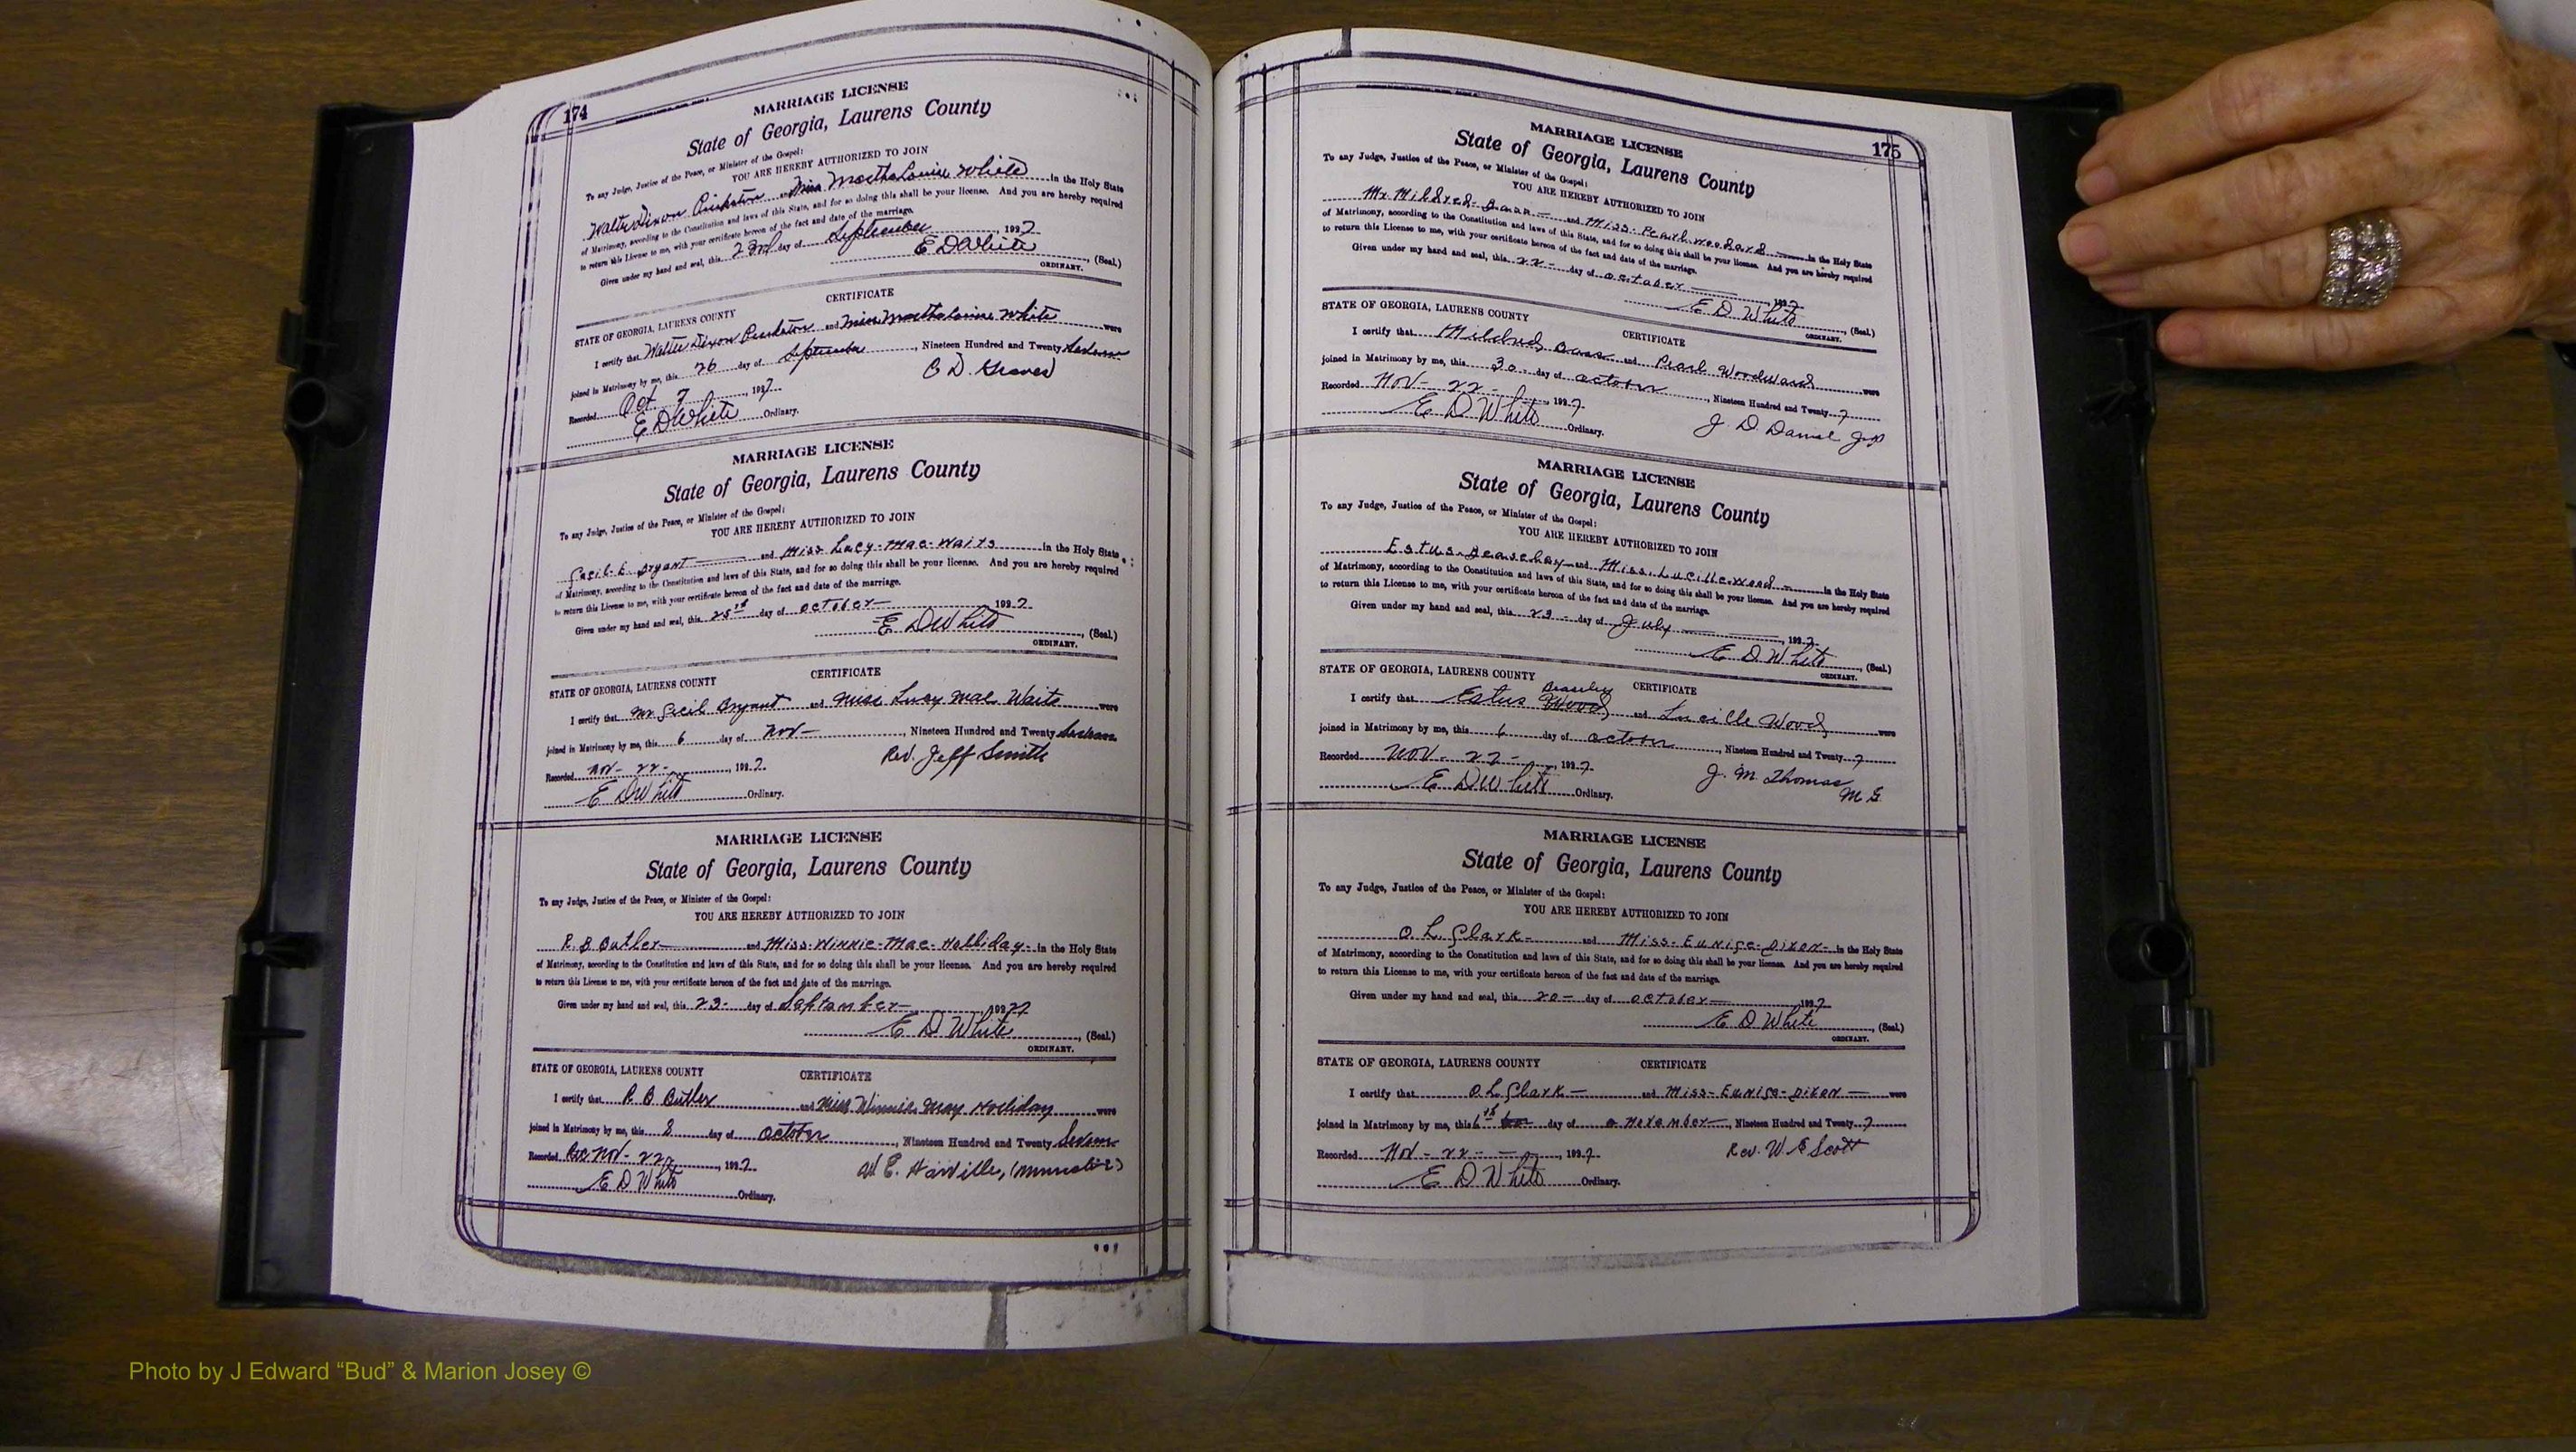 174
MARRIAGE LICENSE
State of Georgia, Laurens County
To any Judge, Justice of the Peace, or Minister of the Gospel:
YOU ARE HEREBY AUTHORIZED TO JOIN
Walter Dixon and Miss White in the Holy State
of Matrimony, according to the Constitution and laws of this State, and for so doing this shall be your license. And you are hereby required
to return this License to me, with your certificate hereon of the fact and date of the marriage.
Given under my hand and seal, this 23rd day of September, 1927
E D White, (Seal.)
ORDINARY.
CERTIFICATE
STATE OF GEORGIA, LAURENS COUNTY
I certify that Walter Dixon and Miss White were
joined in Matrimony by me, this 26 day of September, Nineteen Hundred and Twenty Seven
Recorded Oct 7, 1927. C D Graves
E D White Ordinary.
MARRIAGE LICENSE
State of Georgia, Laurens County
To any Judge, Justice of the Peace, or Minister of the Gospel:
YOU ARE HEREBY AUTHORIZED TO JOIN
Cecil E Bryant and Miss Lucy-Mae-Waits in the Holy State
of Matrimony, according to the Constitution and laws of this State, and for so doing this shall be your license. And you are hereby required
to return this License to me, with your certificate hereon of the fact and date of the marriage.
Given under my hand and seal, this 25th day of October 1927.
E D White, (Seal.)
ORDINARY.
CERTIFICATE
STATE OF GEORGIA, LAURENS COUNTY
I certify that Mr Cecil Bryant and Miss Lucy Mae Waits were
joined in Matrimony by me, this 6 day of Nov, Nineteen Hundred and Twenty Seven
Recorded Nov-22-, 1927. Rev. Jeff Smith
E D White Ordinary.
MARRIAGE LICENSE
State of Georgia, Laurens County
To any Judge, Justice of the Peace, or Minister of the Gospel:
YOU ARE HEREBY AUTHORIZED TO JOIN
R. B Butler and Miss-Winnie-Mae-Holliday- in the Holy State
of Matrimony, according to the Constitution and laws of this State, and for so doing this shall be your license. And you are hereby required
to return this License to me, with your certificate hereon of the fact and date of the marriage.
Given under my hand and seal, this 23- day of September 1927
E D White, (Seal.)
ORDINARY.
STATE OF GEORGIA, LAURENS COUNTY CERTIFICATE
I certify that R B Butler and Miss Winnie May Holliday were
joined in Matrimony by me, this 8 day of October, Nineteen Hundred and Twenty Seven
Recorded Nov-22, 1927. W. E. Harville, (Minister)
E D White Ordinary.
175
MARRIAGE LICENSE
State of Georgia, Laurens County
To any Judge, Justice of the Peace, or Minister of the Gospel:
YOU ARE HEREBY AUTHORIZED TO JOIN
Mr. Mildred- and Miss-Pearl-Woodard in the Holy State
of Matrimony, according to the Constitution and laws of this State, and for so doing this shall be your license. And you are hereby required
to return this License to me, with your certificate hereon of the fact and date of the marriage.
Given under my hand and seal, this 22- day of October, 1927
E D White, (Seal.)
ORDINARY.
STATE OF GEORGIA, LAURENS COUNTY CERTIFICATE
I certify that Mildred and Pearl Woodward were
joined in Matrimony by me, this 30 day of October, Nineteen Hundred and Twenty 7
Recorded Nov-22-, 1927. J. D. Daniel
E D White Ordinary.
MARRIAGE LICENSE
State of Georgia, Laurens County
To any Judge, Justice of the Peace, or Minister of the Gospel:
YOU ARE HEREBY AUTHORIZED TO JOIN
Estus-Beaseley and Miss. Lucille Wood in the Holy State
of Matrimony, according to the Constitution and laws of this State, and for so doing this shall be your license. And you are hereby required
to return this License to me, with your certificate hereon of the fact and date of the marriage.
Given under my hand and seal, this 23- day of July, 1927
E D White, (Seal.)
ORDINARY.
STATE OF GEORGIA, LAURENS COUNTY CERTIFICATE
Beasley
I certify that Estus Wood and Lucille Wood were
joined in Matrimony by me, this 6 day of October, Nineteen Hundred and Twenty 7
Recorded Nov-22-, 1927. J. M. Thomas
E D White Ordinary. M. G.
MARRIAGE LICENSE
State of Georgia, Laurens County
To any Judge, Justice of the Peace, or Minister of the Gospel:
YOU ARE HEREBY AUTHORIZED TO JOIN
O. L. Clark- and Miss-Eunice-Dixon- in the Holy State
of Matrimony, according to the Constitution and laws of this State, and for so doing this shall be your license. And you are hereby required
to return this License to me, with your certificate hereon of the fact and date of the marriage.
Given under my hand and seal, this 20- day of October 1927
E D White, (Seal.)
ORDINARY.
STATE OF GEORGIA, LAURENS COUNTY CERTIFICATE
I certify that O L Clark- and Miss-Eunice-Dixon- were
joined in Matrimony by me, this 6th day of November, Nineteen Hundred and Twenty 7
Recorded Nov-22-, 1927. Rev. W E Scott
E D White Ordinary.
Photo by J Edward “Bud” & Marion Josey ©